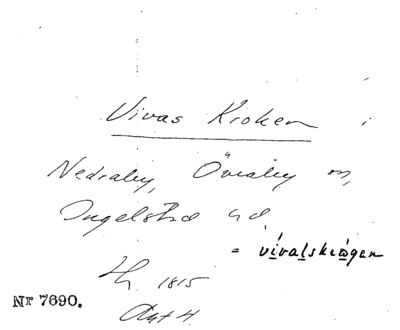 Vivas Kroken i
Nedraby, Övraby sn,
Ingelstad hd
= vivalskrogen
1815
Akt 4
Nr 7690.